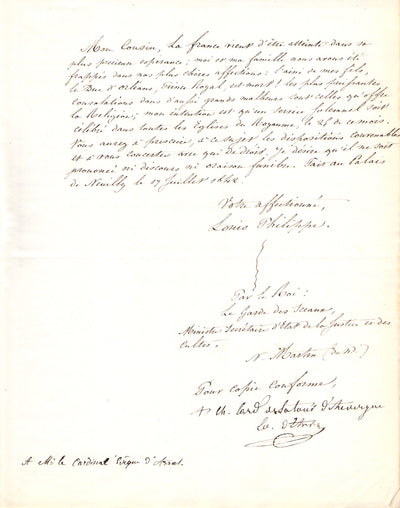 Mon Cousin, La France vient d'être atteinte dans sa
plus precieuse esperance; moi et ma famille nous avons été
frappés dans nos plus chères affections: l'ainé de mes fils,
le Duc d'Orléans, Prince Royal, est mort! les plus puissantes
consolations dans d'aussi grands malheurs sont celles qu'offre
la Religion; mon intention est qu'un service solennel soit
célébré dans toutes les Eglises du Royaume, le 26 de ce mois.
Vous aurez à prescrire, à ce sujet les dispositions convenables
et à vous concerter avec qui de droit. Je désire qu'il ne soit
prononcé ni discours ni oraison funèbre. Fait au Palais
de Neuilly le 17 Juillet 1842.
Votre affectionné,
Louis Philippe.
Par le Roi:
Le Garde des Sceaux,
Ministre Secrétaire d'Etat de la Justice et des
Cultes,
N. Martin (du N.)
Pour copie conforme,
+ Ch. Card. de Latour d'Auvergne
Ev. d'Arras
A Mr le Cardinal Evêque d'Arras.